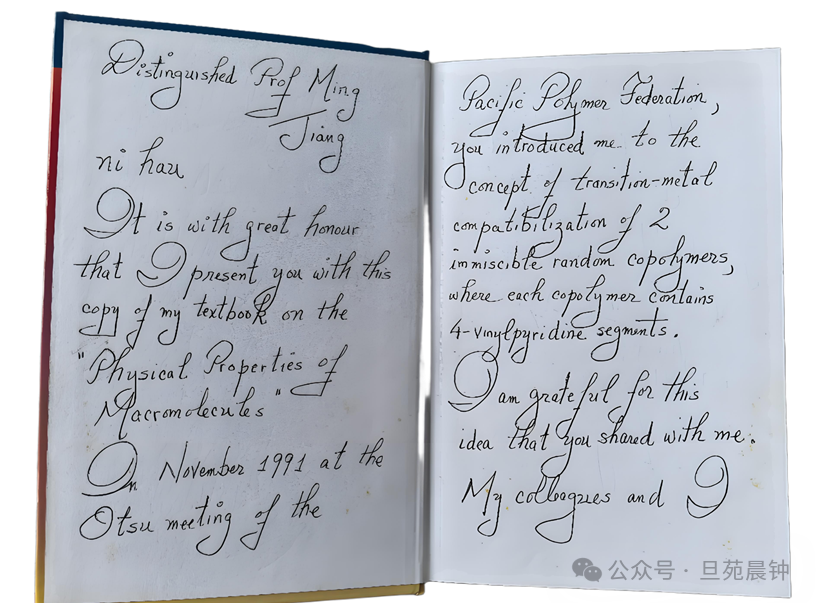 Distinguished Prof Ming
Jiang
ni hau
It is with great honour
that I present you with this
copy of my textbook on the
"Physical Properties of
Macromolecules"
In November 1991 at the
Otsu meeting of the
Pacific Polymer Federation,
you introduced me to the
concept of transition-metal
compatibilization of 2
immiscible random copolymers,
where each copolymer contains
4-vinylpyridine segments.
I am grateful for this
idea that you shared with me.
My colleagues and I
公众号 · 旦苑晨钟